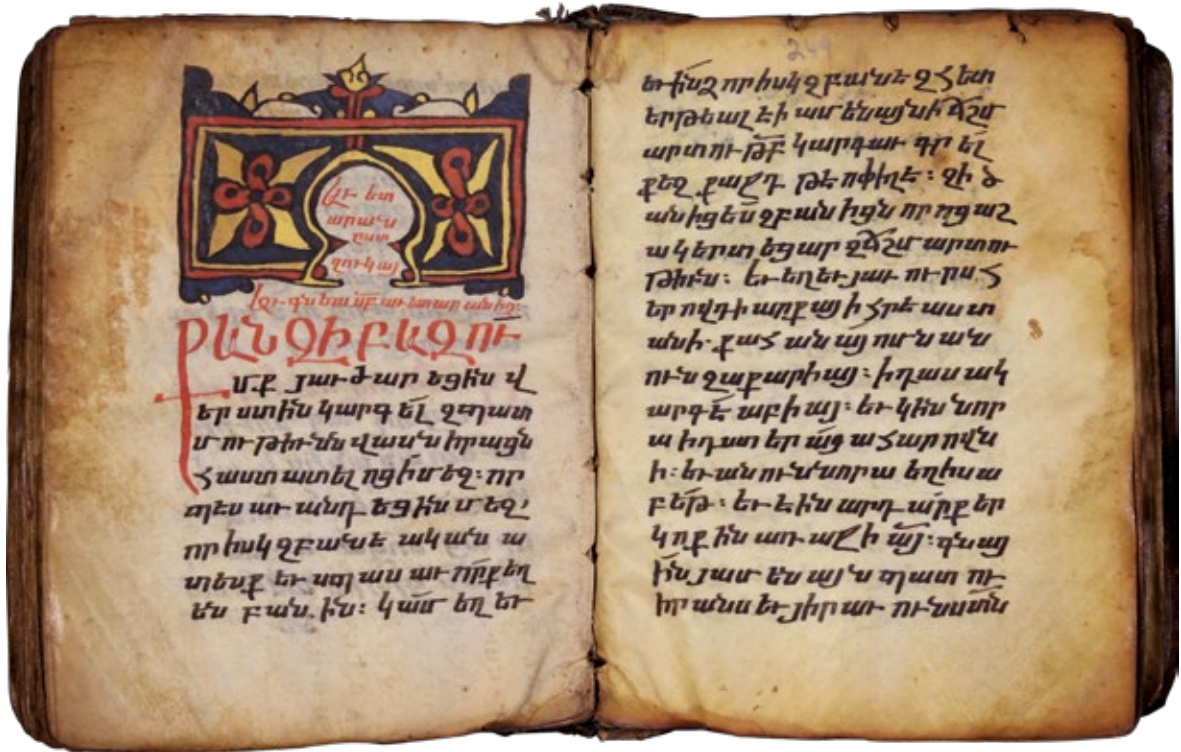 Աւետ
արան
ըստ
ղուկայ
ՔԱՆԶԻ ԲԱԶՈՒ
մ.ք յաւժարեցին վ
երստին կարգել զպատ
մութիւնն վասն իրացն
հաստատելոց ի մեզ։ որ
պէս աւանդեցին մեզ՛
որ իսկզբանէ ական ա
տեսք եւ սպասաւորք եղ
են բան.ին։ կամ եղ եւ
եւ ինձ որ իսկզբանէ զհետ
երթեալ էի ամենայնի ճշմ
արտութբ կարգաւ գրել
քեզ քաջդ թէոփիլէ։ զի ծ
անիցես զբանիցն որոց աշ
ակերտեցար զճշմարտու
թիւն։ եւ եղեւ յաւուրս հ
երովդի արքայի հրէաստ
անի. քահանայ ոմն ան
ուն զաքարիայ։ ի դասակ
արգէ աբիայ։ եւ կին նոր
ա ի դստերաց ահարովն
ի։ եւ անուն նորա եղիսա
բեթ։ եւ էին արդարք եր
կոքին առաջի այ։ գնաց
ին յամենայն պատու
իրանս եւ յիրաւունս տն